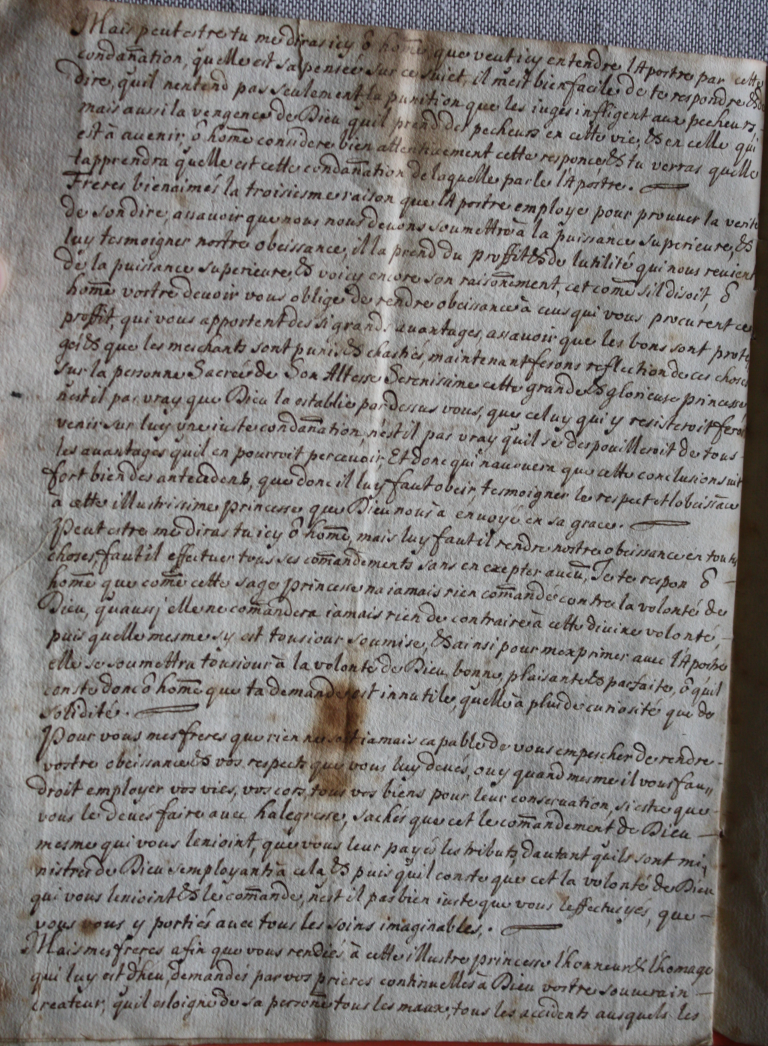 Mais peut estre tu me diras icy ô homẽ que veut icy entendre l'Apostre par cette
condañation, quelle est sa pensée sur ce suiet, il m'est bien facile de te respondre, & de
dire, quil nentend pas seulement la punition que les iuges infligent aux pecheurs,
mais aussi la vengence de Dieu quil prend des pecheurs en cette vie, & en celle qui
est à auenir, ô homẽ considere bien attentiuement cette responce, & tu verras quelle
tapprendra quelle est cette condañation de laquelle parle l'Apostre.
Freres bienaimés la troisiesme raison que l'Apostre employe pour prouuer la verité
de son dire, assauoir que nous nous deuons soumettre à la puissance superieure, &
luy tesmoigner nostre obeissance, il la prend du proffit & de lutilité qui nous reuient
de la puissance superieure, & voicy encore son raisonement, cet comẽ sil disoit, ô
homẽ vostre deuoir vous oblige de rendre obeissance à ceus qui vous procurent ce
proffit, qui vous apportent des si grands auantages, assauoir que les bons sont prote
gés & que les meschants sont punis & chastiés, maintenant fesons reflection de ces choses
sur la personne Sacrée de Son Altesse Serenissime cette grande & glorieuse princesse
nest il pas vray que Dieu la establie par dessus vous, que celuy qui y resisteroit feroit
venir sur luy vne iuste condañation, nest il pas vray quil se despouilleroit de tous
les auantages quil en pourroit perceuoir, Et donc qui nauuera que cette conclusion suit
fort bien des antecedens, que donc il luy faut obeir, tesmoigner le respect et lobeissãce
à cette illustrissime princesse que Dieu nous a enuoyé en sa grace.
Peut estre me diras tu icy ô homẽ, mais luy faut il rendre nostre obeissance en toutes
choses, faut il effectuer tous ses comãndements sans en excepter aucũ, Je te respon ô
homẽ que comẽ cette sage princesse na iamais rien comãndé contre la volonté de
Dieu, quaussj elle ne comãndera iamais rien de contraire à cette diuine volonté,
puis quelle mesme sy est tousiour soumise, & ainsi pour mexprimer auec l'Apostre
elle se soumettra tousiour à la volonté de Dieu, bonne, plaisante & parfaite, ô quil
conste donc ô homẽ que ta demande est innutile, quelle à plus de curiosité que de
solidité.
Pour vous mes freres que rien ne soit iamais capable de vous empescher de rendre
vostre obeissance & vos respects que vous luy deués, ouy quand mesme il vous fau
droit employer vos vies, vos cors, tous vos biens pour leur conseruation, si est ce que
vous le deues faire auec halegresse, sachés que cet le comãndement de Dieu
mesme qui vous lenioint, que vous leur payés les tributs, dautant quils sont mi
nistres de Dieu semployants à cela & puis quil conste que cet la volonté de Dieu
qui vous lenioint & le comãnde, nest il pas bien iuste que vous leffectuyés, que
vous vous y portiés auec tous les soins imaginables.
Mais mes freres afin que vous rendiés à cette illustre princesse lhonneur & lhomage
qui luy est dheu, demandés par vos prieres continuelles à Dieu vostre souuerain
createur, quil esloigne de sa persoñe tous les maux, tous les accidents ausquels les